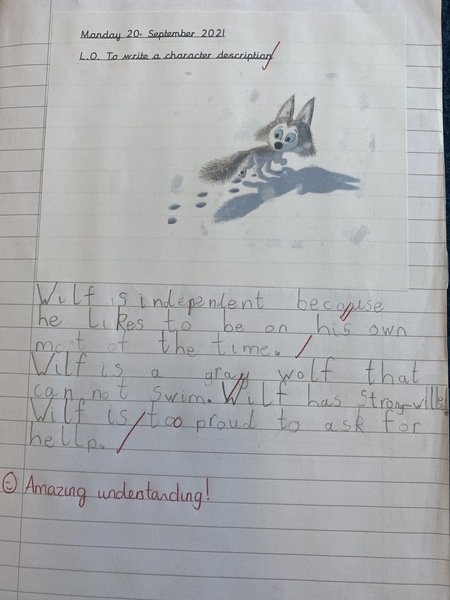 Manday 20- September 2021
L.O. To write a character description
Wilf is independent because
he Likes to be on his own
most of the time.
Wilf is a gray wolf that
can not swim. Wilf has strong-willed
Wilf is too proud to ask for
hellp.
Amazing understanding!